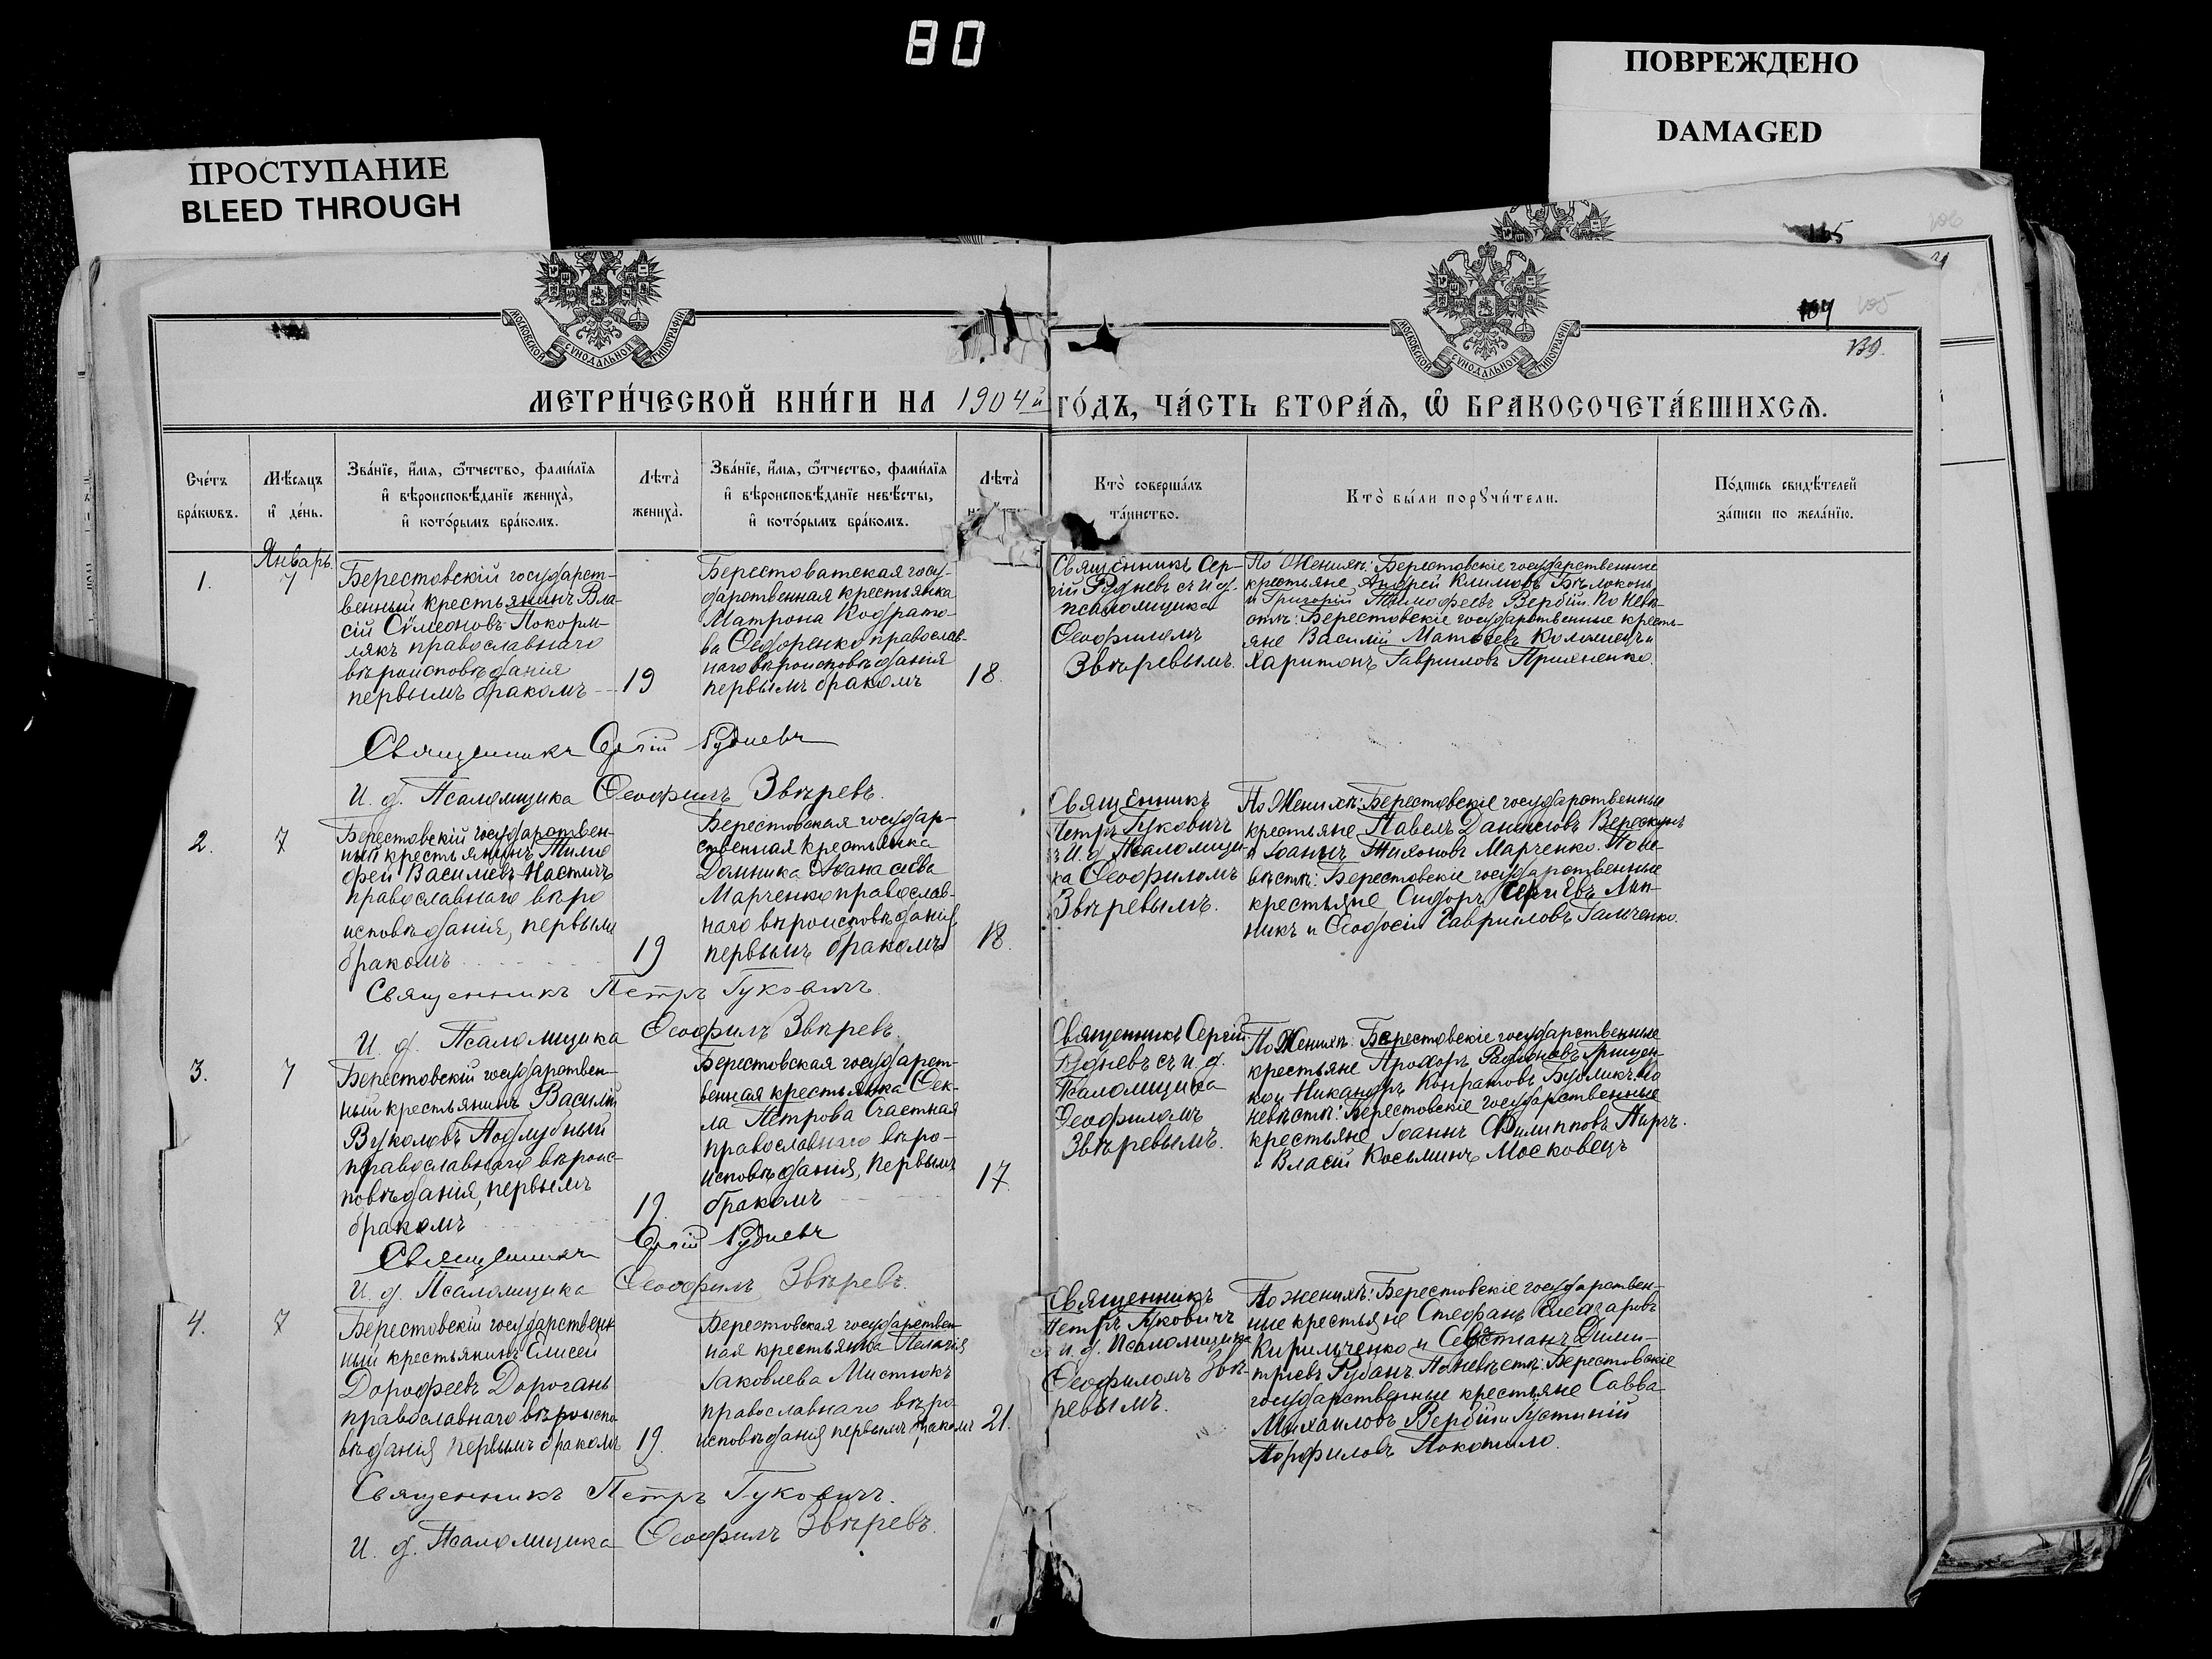 80
ПОВРЕЖДЕНО
DAMAGED
ПРОСТУПАНИЕ
BLEED THROUGH
МОСКОВСКОЙ СѴНОДАЛЬНОЙ ТИПОГРАФІИ
МОСКОВСКОЙ СѴНОДАЛЬНОЙ ТИПОГРАФІИ
105
106
104 105
139.
МЕТРИ́ЧЕСКОЙ КНИ́ГИ НА 1904й ГО́ДЪ, ЧА́СТЬ ВТОРА́Ѧ, Ѽ БРАКОСОЧЕТА́ВШИХСѦ.
Сче́тъ
бра́кѡвъ.
Мѣ́сѧцъ
и҆ де́нь.
Зва́нїе, и҆́мѧ, ѻ҆́тчество, фами́лїѧ
и҆ вѣроисповѣ́данїе жениха̀,
и҆ кото́рымъ бра́комъ.
Лѣ́та̀
жениха̀.
Зва́нїе, и҆́мѧ, ѻ҆́тчество, фами́лїѧ
и҆ вѣроисповѣ́данїе невѣ́сты,
и҆ кото́рымъ бра́комъ.
Лѣ́та̀
Кто̀ соверша́лъ
та́инство.
Кто̀ бы́ли порꙋчи́тели.
По́дпись свидѣ́телей
за́писи по жела́нїю.
Январь.
1.
7
Берестовскій государст-
венный крестьянинъ Вла-
сій Сѵмеоновъ Покорм-
лякъ православнаго
вѣроисповѣданія
первымъ бракомъ
19
Берестоватская госу-
дарственная крестьянка
Матрона Кодрато-
ва Ѳедоренко православ-
наго вѣроисповѣданія
первымъ бракомъ
18.
Священникъ Сер-
гій Рудневъ съ и. д.
псаломщика
Ѳеофиломъ
Звѣревымъ.
По Женихѣ: Берестовскіе государственные
крестьяне Андрей Климовъ Бѣлоконь
и Григорій Тимофеевъ Вербій. По невѣ-
стѣ: Берестовскіе государственные кресть-
яне Василій Матѳеевъ Коломіецъ и
Харитонъ Гавриловъ
Священникъ Сергій Рудневъ
И. д. Псаломщика Ѳеофилъ Звѣревъ.
2.
7
Берестовскій государствен-
ный крестьянинъ Тимо
фей Василіевъ Настичъ
православнаго вѣро
исповѣданія, первымъ
бракомъ
19
Берестовская государ-
ственная крестьянка
Домника Аѳанасіева
Марченко православ-
наго вѣроисповѣданія,
первымъ бракомъ
18.
Священникъ
Петръ Гуковичъ
съ И. д. Псаломщи-
ка Ѳеофиломъ
Звѣревымъ.
По Женихѣ: Берестовскіе государственные
крестьяне Павелъ Даниловъ Верескунъ
и Іоаннъ Тихоновъ Марченко. По не-
вѣстѣ: Берестовскіе государственные
крестьяне Сидоръ Сергіевъ Лип-
никъ и Ѳеодосій Гавриловъ Гальченко.
Священникъ Петръ Гуковичъ.
И. д. Псаломщика Ѳеофилъ Звѣревъ.
3.
7
Берестовскій государствен-
ный крестьянинъ Василій
Вуколовъ Поддубный
православнаго вѣроис-
повѣданія, первымъ
бракомъ
19.
Берестовская государст-
венная крестьянка Ѳек-
ла Петрова Счастная
православнаго вѣро-
исповѣданія, первымъ
бракомъ
17.
Священникъ Сергій
Рудневъ съ и. д.
Псаломщика
Ѳеофиломъ
Звѣревымъ.
По Женихѣ: Берестовскіе государственные
крестьяне Прохоръ Радіоновъ Грищен-
ко и Никандръ Кондратовъ Бубликъ. По
невѣстѣ: Берестовскіе государственные
крестьяне Іоаннъ Филипповъ Пиръ.
и Власій Косьминъ Московецъ
Священникъ Сергій Рудневъ
И. д. Псаломщика Ѳеофилъ Звѣревъ.
4.
7
Берестовскій государствен
ный крестьянинъ Елисей
Дорофеевъ Дорогань
православнаго вѣроиспо
вѣданія первымъ бракомъ
19.
Берестовская государствен-
ная крестьянка Пелагія
Іаковлева Мистюкъ
православнаго вѣро
исповѣданія первымъ бракомъ
21.
Священникъ
Петръ Гуковичъ
съ и. д. Псаломщика
Ѳеофиломъ Звѣ-
ревымъ.
По женихѣ: Берестовскіе государствен-
ные крестьяне Стефанъ Елеазаровъ
Кирильченко и Севастіанъ Дими-
тріевъ Рубанъ. По невѣстѣ: Берестовскіе
государственные крестьяне Савва
Михаиловъ Вербій и Густиній
Порфиловъ Покотило.
Священникъ Петръ Гуковичъ.
И. д. Псаломщика Ѳеофилъ Звѣревъ.